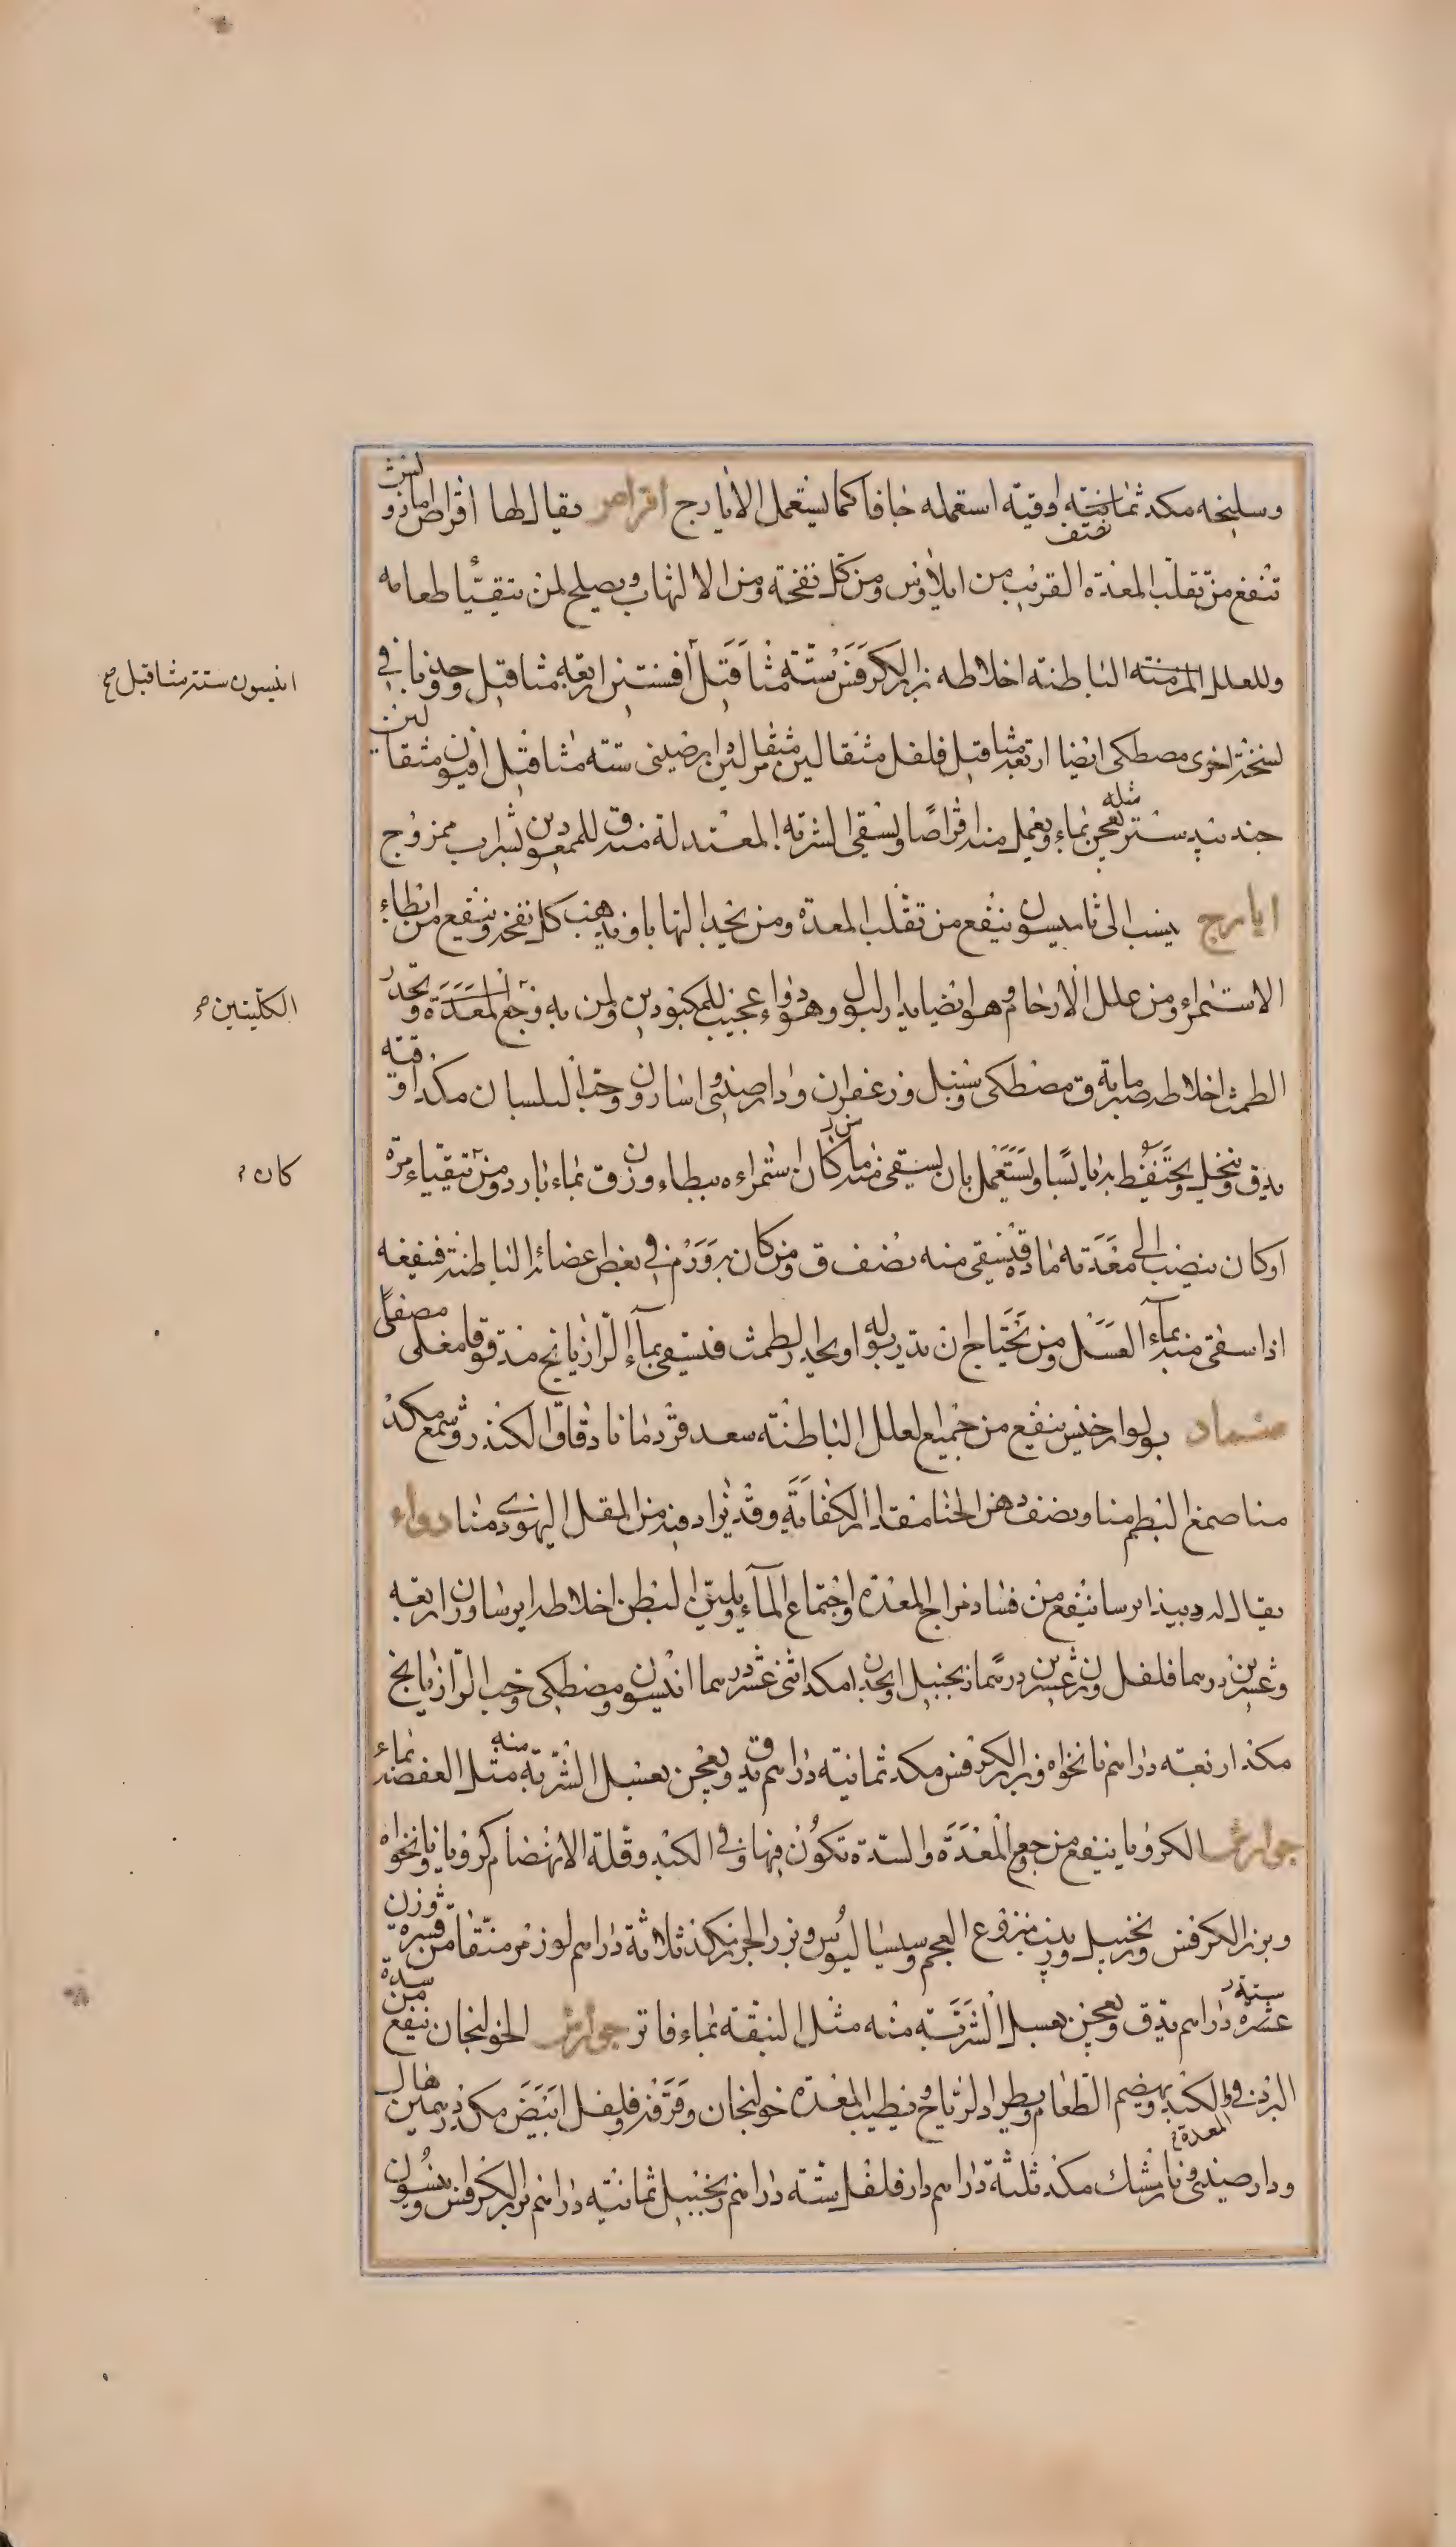 وسليخه مكد ثمانية اوقية استعمله جافا كما يستعمل الايارج اقراص يقال لها اقراص امازونيس
نصف
تنفع من تقلب المعدة القريب من ايلاوس ومن كل نفخة ومن الالتهاب ويصلح لمن يتقيأ طعامه
وللعلل المزمنة الباطنة اخلاطه بزر الكرفس ستة مثاقيل افسنتين اربعة مثاقيل وجدنا في
انيسون ستة مثاقيل صح
نسخة اخرى مصطكى ايضا اربعة مثاقيل فلفل مثقالين مر مثقالين دارصيني ستة مثاقيل افيون مثقالين
جند بيدستر مثله يعجن بماء ويعمل منه اقراصا ويسقى الشربة المعتدلة منه ق للممعودين بشراب ممزوج
ايارج ينسب الى ثاميسون ينفع من تقلب المعدة ومن يجد التهابا ويذهب كل نفخة وينفع من ابطاء
الاستمراء ومن علل الارحام وهو ايضا يدر البول وهو دواء عجيب للمكبودين ولمن به وجع المعدة ويحدر
الكليتين صح
الطمث اخلاطه صبر ماية ق مصطكى وسنبل وزعفران ودارصيني واسارون وحب البلسان مكد اوقية
يدق وينخل ويحتفظ به يابسا ويستعمل بان يسقى منه من كان استمراءه ببطاء وزن ق بماء بارد ومن يتقياء مرة
كان
اوكان ينصب الى معدته مادة فيسقى منه نصف ق ومن كان به ورم في بعض اعضائه الباطنة فينفعه
اذا سقى منه بماء العسل ومن يحتاج ان يدر بوله او يحدر الطمث فيسقى بماء الرازيانج مدقوقا مغلى مصفى
ضماد بولوارخيس ينفع من جميع العلل الباطنة سعد قردمانا دقاق الكندر وشمع مكد
منا صمغ البطم منا ونصف دهن الحنا مقدار الكفاية وقد يزاد فيه من المقل اليهودي منا دواء
يقال له دبيذ ايرسا ينفع من فساد مزاج المعدة واجتماع الماء ويلين البطن اخلاطه ايرسا وزن اربعة
وعشرين درهما فلفل وزن عشرين درهما زنجبيل وانجدان مكد اثنى عشر درهما انيسون ومصطكى وحب الرازيانج
مكد اربعة دراهم نانخواه وبزر الكرفس مكد ثمانية دراهم يدق ويعجن بعسل الشربة منه مثل العفصة بماء
جوارش الكرويا ينفع من وجع المعدة والسدة تكون فيها وفي الكبد وقلة الانهضام كرويا ونانخواه
وبزر الكرفس وزنجبيل منزوع العجم وسيساليوس وبزر الجزر مكد ثلاثة دراهم لوز مر منقا من قشره وزن
ستة عشر دراهم يدق ويعجن بعسل الشربة منه مثل النبقة بماء فاتر جوارش الخولنجان ينفع من سدة
البرد في الكبد ويهضم الطعام ويطرد الرياح ويطيب المعدة خولنجان وقرفة وفلفل ابيض مكد درهمين هال
المعدة
ودارصيني ونارمشك مكد ثلثة دراهم دارفلفل ستة دراهم زنجبيل ثمانية دراهم بزر الكرفس وانيسون